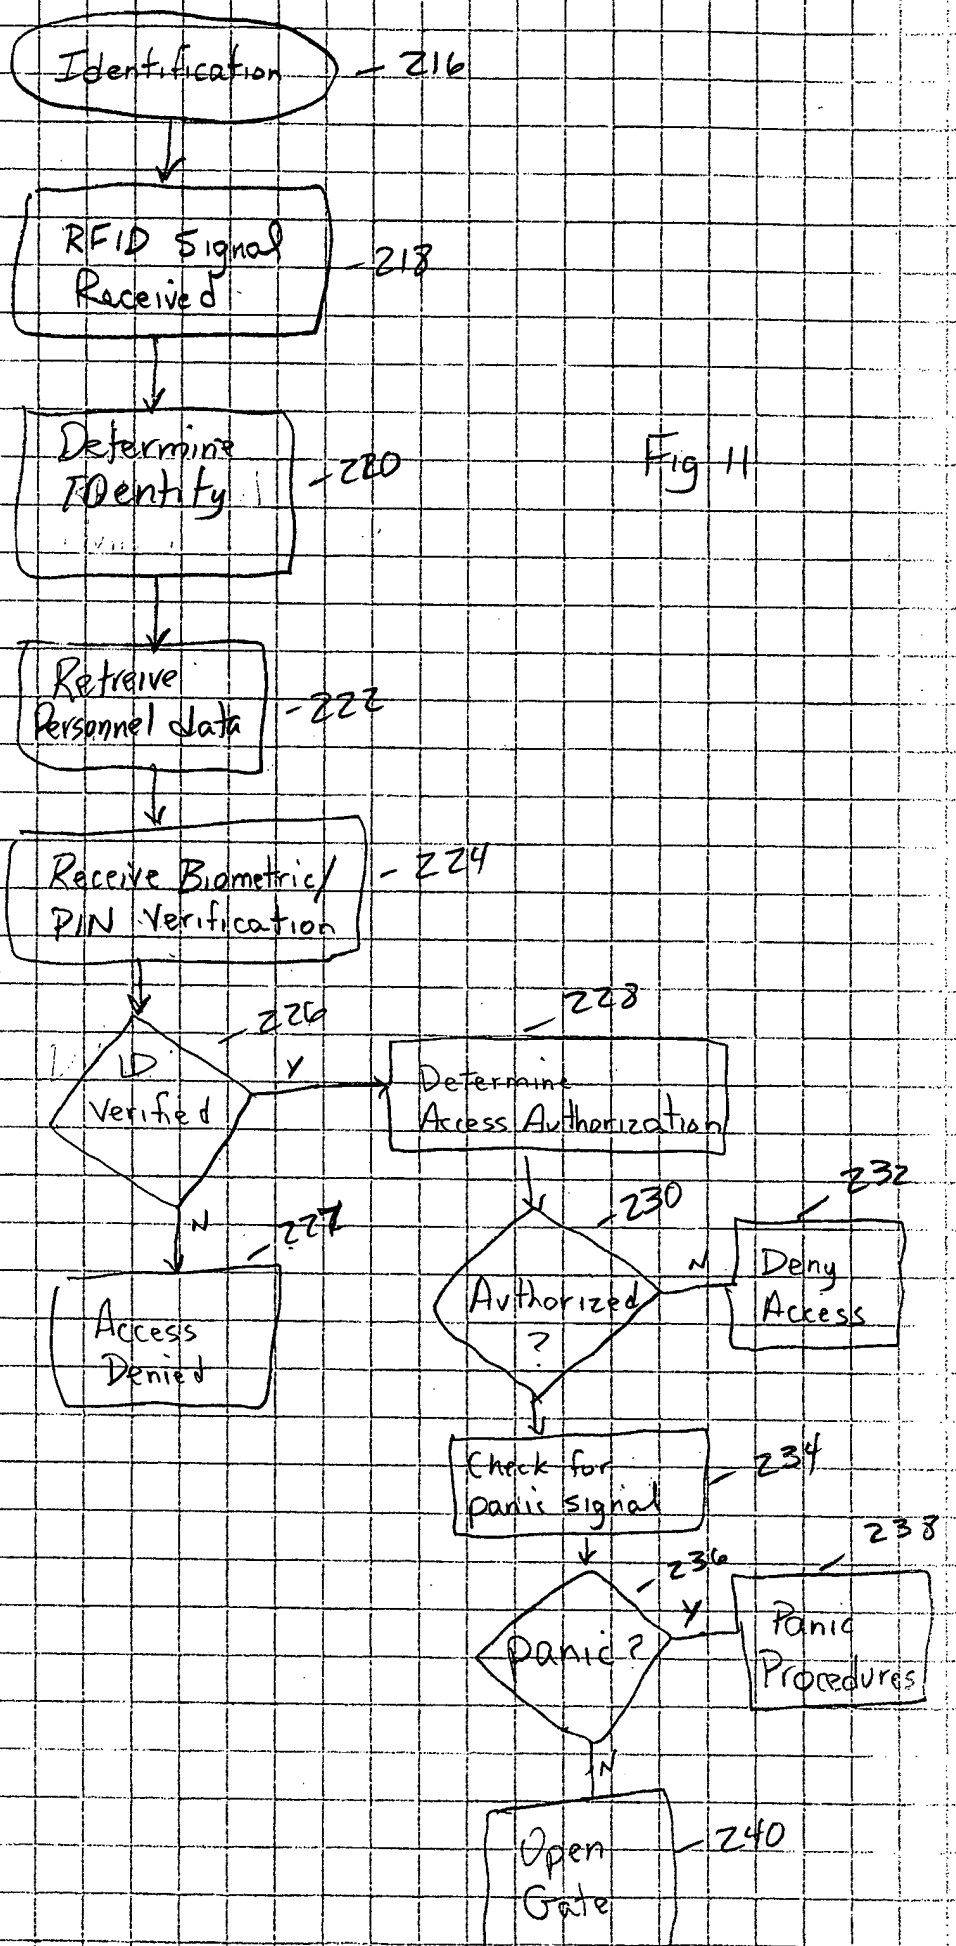 Identification
216
RFID Signal
Received
218
Determine
IDentity
220
Fig 11
Retreive
Personnel data
222
Receive Biometric/
PIN Verification
224
ID
Verified
226
Y
N
227
Access
Denied
228
Determine
Access Authorization
230
Authorized
?
N
232
Deny
Access
Check for
panic signal
234
236
panic?
Y
238
Panic
Procedures
N
Open
Gate
240